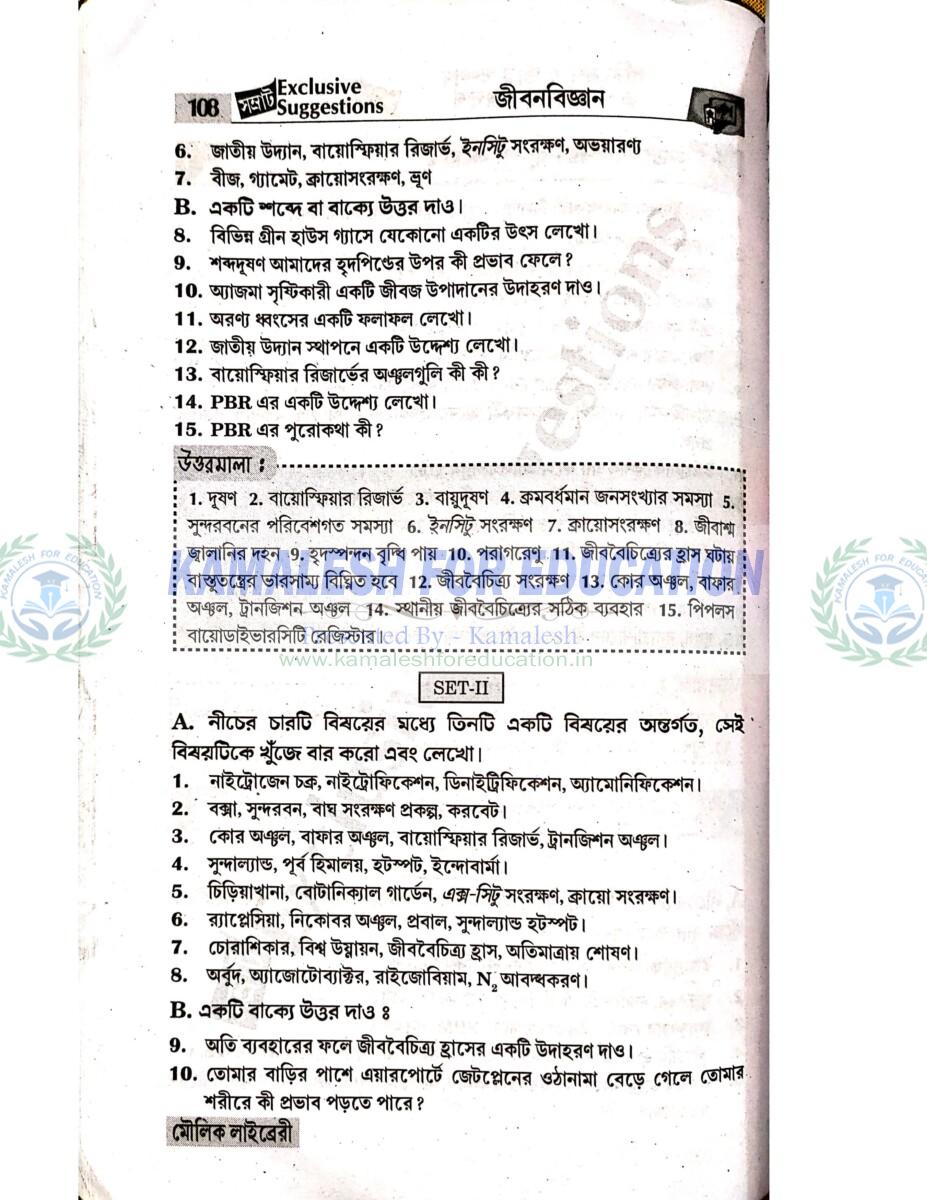 108 সম্রাট Exclusive Suggestions জীবনবিজ্ঞান
6. জাতীয় উদ্যান, বায়োস্ফিয়ার রিজার্ভ, ইনসিটু সংরক্ষণ, অভয়ারণ্য
7. বীজ, গ্যামেট, ক্রায়োসংরক্ষণ, ভ্রূণ
B. একটি শব্দে বা বাক্যে উত্তর দাও।
8. বিভিন্ন গ্রীন হাউস গ্যাসে যেকোনো একটির উৎস লেখো।
9. শব্দদূষণ আমাদের হৃদপিণ্ডের উপর কী প্রভাব ফেলে?
10. অ্যাজমা সৃষ্টিকারী একটি জীবজ উপাদানের উদাহরণ দাও।
11. অরণ্য ধ্বংসের একটি ফলাফল লেখো।
12. জাতীয় উদ্যান স্থাপনে একটি উদ্দেশ্য লেখো।
13. বায়োস্ফিয়ার রিজার্ভের অঞ্চলগুলি কী কী?
14. PBR এর একটি উদ্দেশ্য লেখো।
15. PBR এর পুরোকথা কী?
উত্তরমালা :
1. দূষণ 2. বায়োস্ফিয়ার রিজার্ভ 3. বায়ুদূষণ 4. ক্রমবর্ধমান জনসংখ্যার সমস্যা 5.
সুন্দরবনের পরিবেশগত সমস্যা 6. ইনসিটু সংরক্ষণ 7. ক্রায়োসংরক্ষণ 8. জীবাশ্ম
জ্বালানির দহন 9. হৃদস্পন্দন বৃদ্ধি পায় 10. পরাগরেণু 11. জীববৈচিত্র্যের হ্রাস ঘটায়
বাস্তুতন্ত্রের ভারসাম্য বিঘ্নিত হবে 12. জীববৈচিত্র্য সংরক্ষণ 13. কোর অঞ্চল, বাফার
অঞ্চল, ট্রানজিশন অঞ্চল 14. স্থানীয় জীববৈচিত্র্যের সঠিক ব্যবহার 15. পিপলস
বায়োডাইভারসিটি রেজিস্টার।
KAMALESH FOR EDUCATION
By - Kamalesh
www.kamaleshforeducation.in
SET-II
A. নীচের চারটি বিষয়ের মধ্যে তিনটি একটি বিষয়ের অন্তর্গত, সেই
বিষয়টিকে খুঁজে বার করো এবং লেখো।
1. নাইট্রোজেন চক্র, নাইট্রোফিকেশন, ডিনাইট্রিফিকেশন, অ্যামোনিফিকেশন।
2. বক্সা, সুন্দরবন, বাঘ সংরক্ষণ প্রকল্প, করবেট।
3. কোর অঞ্চল, বাফার অঞ্চল, বায়োস্ফিয়ার রিজার্ভ, ট্রানজিশন অঞ্চল।
4. সুন্দাল্যান্ড, পূর্ব হিমালয়, হটস্পট, ইন্দোবার্মা।
5. চিড়িয়াখানা, বোটানিক্যাল গার্ডেন, এক্স-সিটু সংরক্ষণ, ক্রায়ো সংরক্ষণ।
6. র‍্যাপ্লেসিয়া, নিকোবর অঞ্চল, প্রবাল, সুন্দাল্যান্ড হটস্পট।
7. চোরাশিকার, বিশ্ব উষ্ণায়ন, জীববৈচিত্র্য হ্রাস, অতিমাত্রায় শোষণ।
8. অর্বুদ, অ্যাজোটোব্যাক্টর, রাইজোবিয়াম, N₂ আবদ্ধকরণ।
B. একটি বাক্যে উত্তর দাও ঃ
9. অতি ব্যবহারের ফলে জীববৈচিত্র্য হ্রাসের একটি উদাহরণ দাও।
10. তোমার বাড়ির পাশে এয়ারপোর্টে জেটপ্লেনের ওঠানামা বেড়ে গেলে তোমার
শরীরে কী প্রভাব পড়তে পারে?
মৌলিক লাইব্রেরী